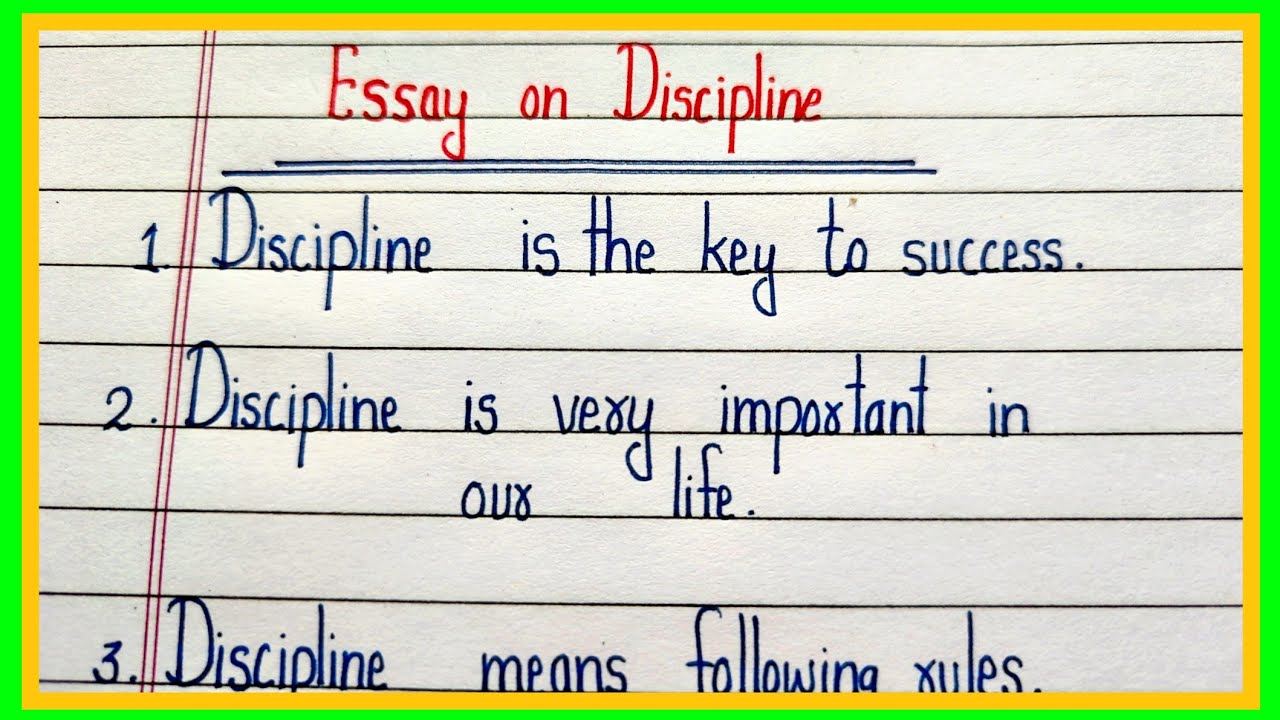 Essay on Discipline
1. Discipline is the key to success.
2. Discipline is very important in
our life.
3. Discipline means following rules.